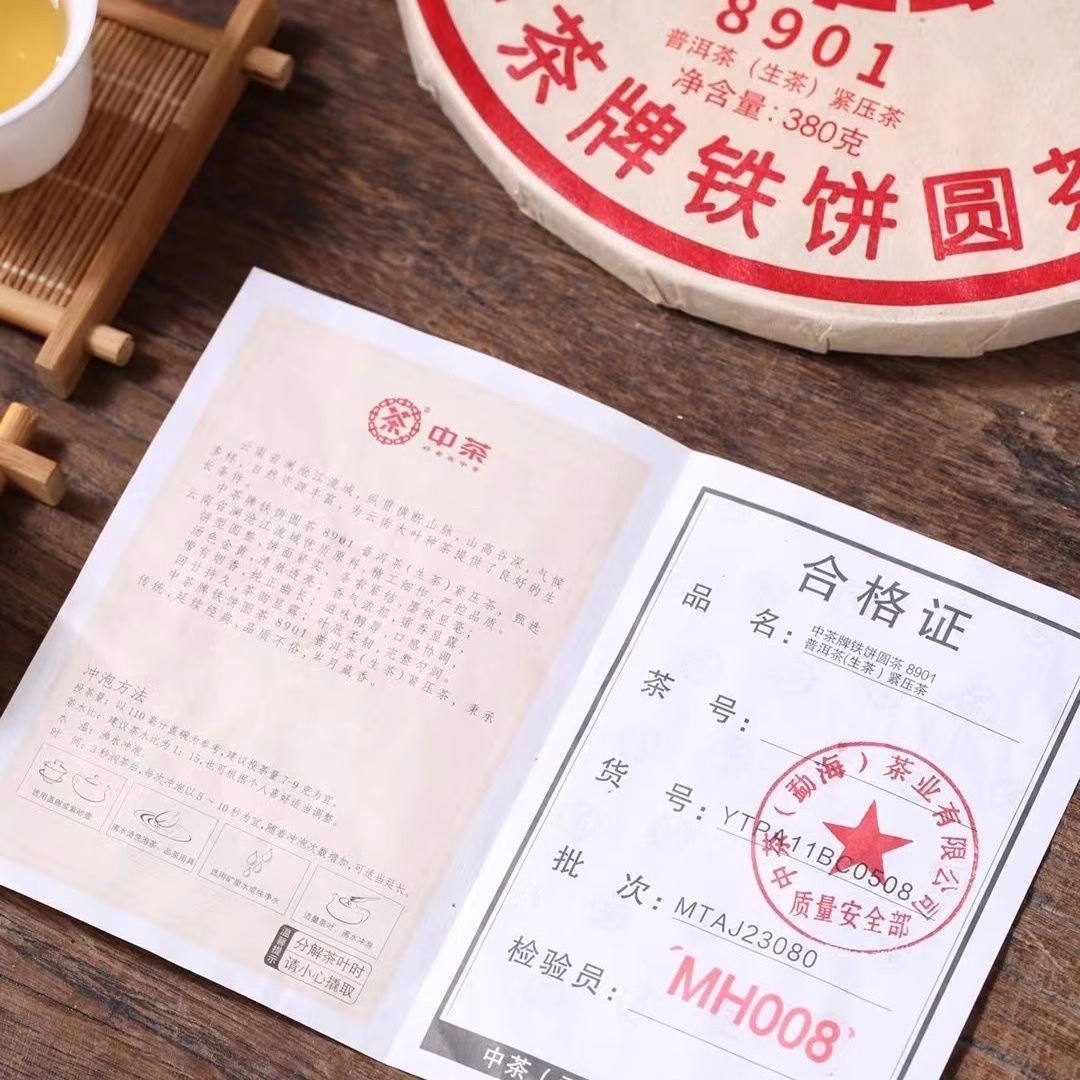 8901
普洱茶（生茶）紧压茶
净含量：380克
茶牌铁饼圆茶
茶
中茶
云南省澜沧江流域，纵贯横断山脉，山高谷深，气候
多样，自然资源丰富，为云南大叶种茶提供了良好的生
长条件。
中茶牌铁饼圆茶 8901 普洱茶(生茶)紧压茶，甄选
云南省澜沧江流域优质原料，精工细作，严控品质。
饼型圆整，饼面紧实，条索紧结，墨绿显毫；
汤色金黄，清澈透亮；香气浓郁，蜜香显露，
带有烟香，纯正幽长；滋味醇厚，口感协调，
回甘持久，茶韵显露；叶底柔韧，完整匀润。
中茶牌铁饼圆茶 8901 普洱茶(生茶)紧压茶，秉承
传统，延续经典，品质不俗，岁月藏香。
冲泡方法
投茶量：以 110 毫升盖碗为参考，建议投茶量 7-9 克为宜。
茶水比：建议茶水比为 1：15，也可根据个人喜好适当调整。
水 温：沸水冲泡。
时 间：3 秒润茶后，每次冲泡以 5～10 秒为宜，随着冲泡次数增加，可适当延长。
选用盖碗或紫砂壶
沸水烫洗泡茶、品茶用具
选用矿泉水或纯净水
适量茶叶 沸水冲泡
温馨提示
分解茶叶时
请小心撬取
合格证
品 名：中茶牌铁饼圆茶 8901
普洱茶(生茶）紧压茶
茶 号：
货 号：YTPA11BC0508
批 次：MTAJ23080
检验员：MH008
中茶（勐海）茶业有限公司
质量安全部
中茶（